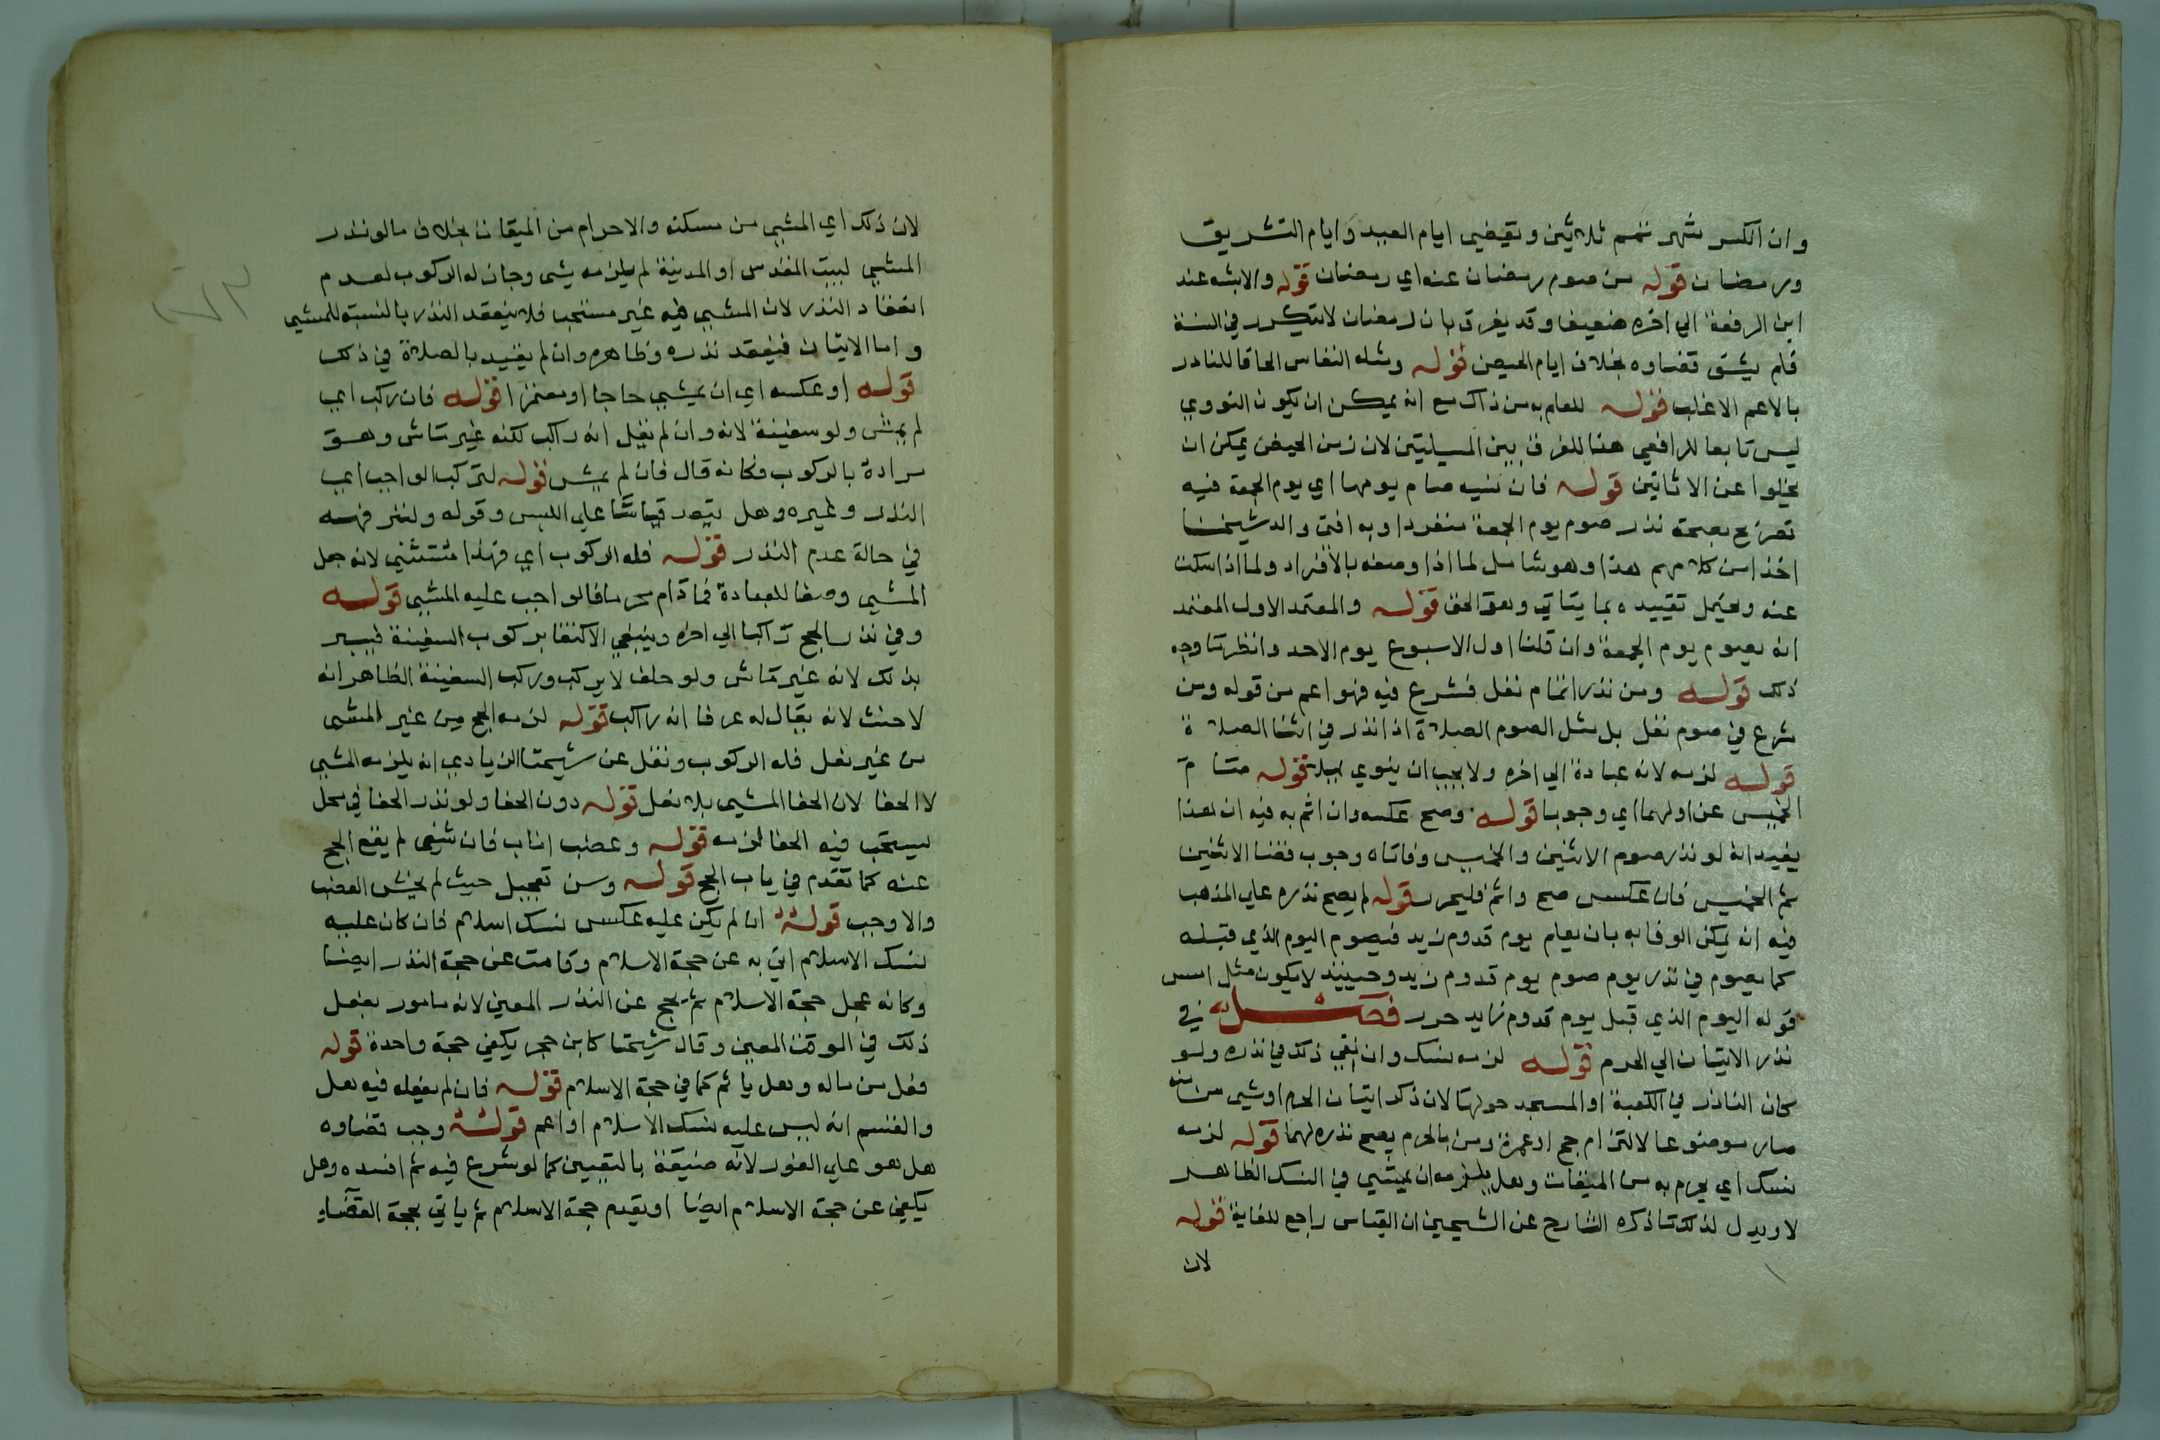 وان انكسر شهر تمم ثلاثين وتقيضي ايام العيد وايام التشريق
ورمضان قوله من صوم رمضان عنه اي رمضان قوله والابشه عند
ابن الرفعة الي اخره ضعيف وقد يفرق بان رمضان لا يتكرر في السنة
فلم يشق قضاوه بخلاف ايام الحيض قوله ومثله النفاس الحاقا للنادر
بالاعم الاغلب قوله للعلم به من ذاك مع انه يمكن ان يكون النووي
ليس تابعا للرافعي هنا للفرق بين المسيلتين لان زمن الحيض يمكن ان
يخلوا عن الاثانين قوله فان نسيه صام يومها اي يوم الجمعة فيه
تصريح بصحة نذر صوم يوم الجمعة منفردا وبه افتي والد شيخنا
اخذا من كلامهم هذا وهو شامل لما اذا وصفه بالافراد ولما اذا سكت
عنه ويحتمل تقييده بما يتاتي وهو الحق قوله والمعتمد الاول المعتمد
انه يصوم يوم الجمعة وان قلنا اول الاسبوع يوم الاحد وانظر ما وجه
ذلك قوله ومن نذر اتمام نفل فشرع فيه فهو اعم من قوله ومن
شرع في صوم نفل بل مثل الصوم الصلاة اذا نذر في اثنا الصلاة
قوله لزمه لانه عبادة الي اخره ولا يجب ان ينوي قوله صام
الخميس عن اولهما اي وجوبا قوله وصح عكسه وان اثم به فيه ان هذا
يفيد انه لو نذر صوم الاثنين والخميس وفاتاه وجوب قضا الاثنين
ثم الخميس فان عكس صح واثم فليحرر قوله لم يصح نذره علي المذهب
فيه انه يمكن الوفا به بان يعلم يوم قدوم زيد فيصوم اليوم الذي قبله
كما يصوم في نذر يوم صوم يوم قدوم زيد وحينيذ لا يكون مثل امس
قوله اليوم الذي قبل يوم قدوم زيد حرر فصل في
نذر الاتيان الي الحرم قوله لزمه نسك وان نفي ذلك في نذره ولو
كان الناذر في الكعبة او المسجد حولها لان ذكر اتيان الحرم او شي منه
صار موضوعا لالتزام حج او عمرة ومن بالحرم يصح نذره لهما قوله لزمه
نسك اي يحرم به من الميقات وهل يلزمه ان يمشي في النسك الظاهر
لا ويدل لذلك ما ذكره الشارح عن الشيخين ان القياس راجع للغاية قوله
لان
لان ذلك اي المشي من مسكنه والاحرام من الميقات بخلاف ما لو نذر
المشي لبيت المقدس او المدينة لم يلزمه شي وجاز له الركوب لعدم
انعقاد النذر لان المشي فيه غير مستحب فلا ينعقد النذر بالنسبة للمشي
واما الاتيان فينعقد نذره وظاهره وان لم يقيد بالصلاة في ذلك
قوله او عكسه اي ان يمشي حاجا او معتمرا قوله فان ركب اي
لم يمش ولو سفينة لانه وان لم نقل انه راكب لكنه غير ماش وهو
مراده بالركوب فكانه قال فان لم يمش قوله لتركه الواجب اي
النذر وغيره وهل قياسا علي اللبس وقوله ولتر فهه
في حالة عدم النذر قوله فله الركوب اي فهذا مستثني لانه جعل
المشي وصفا للعبادة فما دام محرما فالواجب عليه المشي قوله
وفي نذر الحج راكبا الي اخره وينبغي الاكتفا بركوب السفينة فيبر
بذلك لانه غير ماش ولو حلف لا يركب وركب السفينة الظاهر انه
لا حنث لانه يقال له عرفا انه راكب قوله لزمه الحج من غير المشي
من غير نعل فله الركوب ونقل عن شيخنا الزيادي انه يلزمه المشي
لا الحفا لان الحفا المشي بلا نعل قوله دون الحفا ولو نذر الحفا في محل
يستحب فيه الحفا لزمه قوله وعضب اناب فان شفي لم يقع الحج
عنه كما تقدم في باب الحج قوله وسن تعجيل حيث لم يخش العضب
والا وجب قوله ان لم يكن عليه عكس نسك اسلام فان كان عليه
نسك الاسلام اتي به عن حجة الاسلام وقامت عن حجة النذر ايضا
وكانه عجل حجة الاسلام ثم حج عن النذر المعين لانه مامور بفعل
ذلك في الوقت المعين وقال شيخنا كابن حجر يكفي حجة واحدة قوله
فعل من ماله وهل ياثم كما في حجة الاسلام قوله فان لم يفعله فيه هل
والقسم انه ليس عليه نسك الاسلام او اعم قوله وجب قضاوه
هل هو علي الفور لانه ضيقه بالتعيين كما لو شرع فيه ثم افسده وهل
يكفي عن حجة الاسلام ايضا او يقدم حجة الاسلام ثم ياتي بحجة القضاء